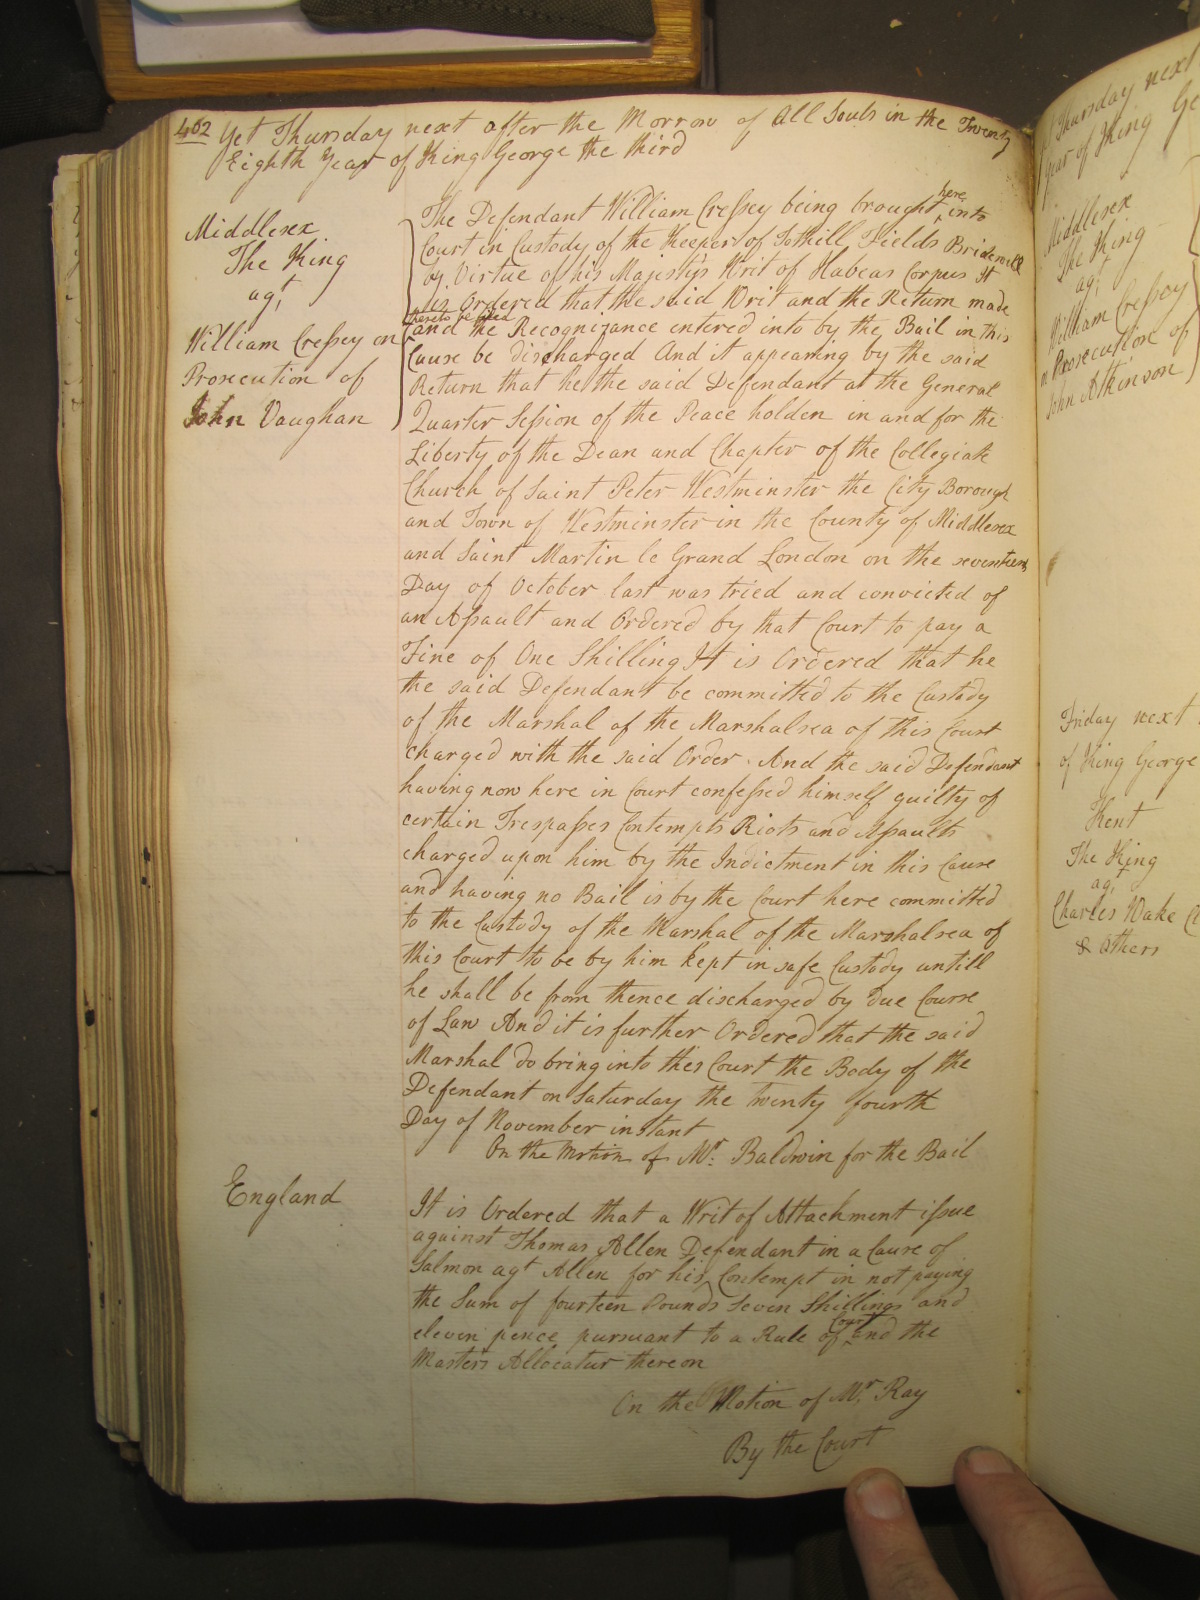 402 Yet Thursday next after the Morrow of All Souls in the Twenty
Eighth Year of King George the third
Middlesex
The King
agt
William Cressey on
Prosecution of
John Vaughan
The Defendant William Cressey being brought here into
Court in Custody of the Keeper of Tothill Fields Bridewell
by Virtue of his Majesty's Writ of Habeas Corpus It
is Ordered that the said Writ and the Return made
thereto be filed
and the Recognizance entered into by the Bail in this
Cause be discharged And it appearing by the said
Return that he the said Defendant at the General
Quarter Session of the Peace holden in and for the
Liberty of the Dean and Chapter of the Collegiate
Church of Saint Peter Westminster the City Borough
and Town of Westminster in the County of Middlesex
and Saint Martin le Grand London on the seventeenth
Day of October last was tried and convicted of
an Assault and Ordered by that Court to pay a
Fine of One Shilling It is Ordered that he
the said Defendant be committed to the Custody
of the Marshal of the Marshalsea of this Court
charged with the said Order. And the said Defendant
having now here in Court confessed himself guilty of
certain Trespasses Contempts Riots and Assaults
charged upon him by the Indictment in this Cause
and having no Bail is by the Court here committed
to the Custody of the Marshal of the Marshalsea of
this Court to be by him kept in safe Custody untill
he shall be from thence discharged by due Course
of Law And it is further Ordered that the said
Marshal do bring into this Court the Body of the
Defendant on Saturday the Twenty fourth
Day of November instant
On the Motion of Mr. Baldwin for the Bail
England
It is Ordered that a Writ of Attachment issue
against Thomas Allen Defendant in a Cause of
Salmon agt Allen for his Contempt in not paying
the Sum of fourteen Pounds seven Shillings and
eleven pence pursuant to a Rule of Court and the
Masters Allocatur thereon
On the Motion of Mr. Ray
By the Court
Thursday next
Year of King Ge
Middlesex
The King
agt
William Cressey
on Prosecution of
John Atkinson
Friday next
of King George
Kent
The King
agt
Charles Wake
& Others